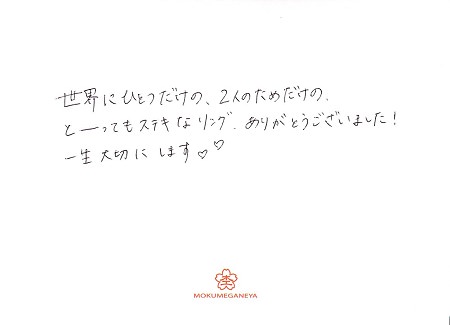 世界にひとつだけの、2人のためだけの、
と──ってもステキなリング、ありがとうございました!
一生大切にします♡♡
杢
MOKUMEGANEYA